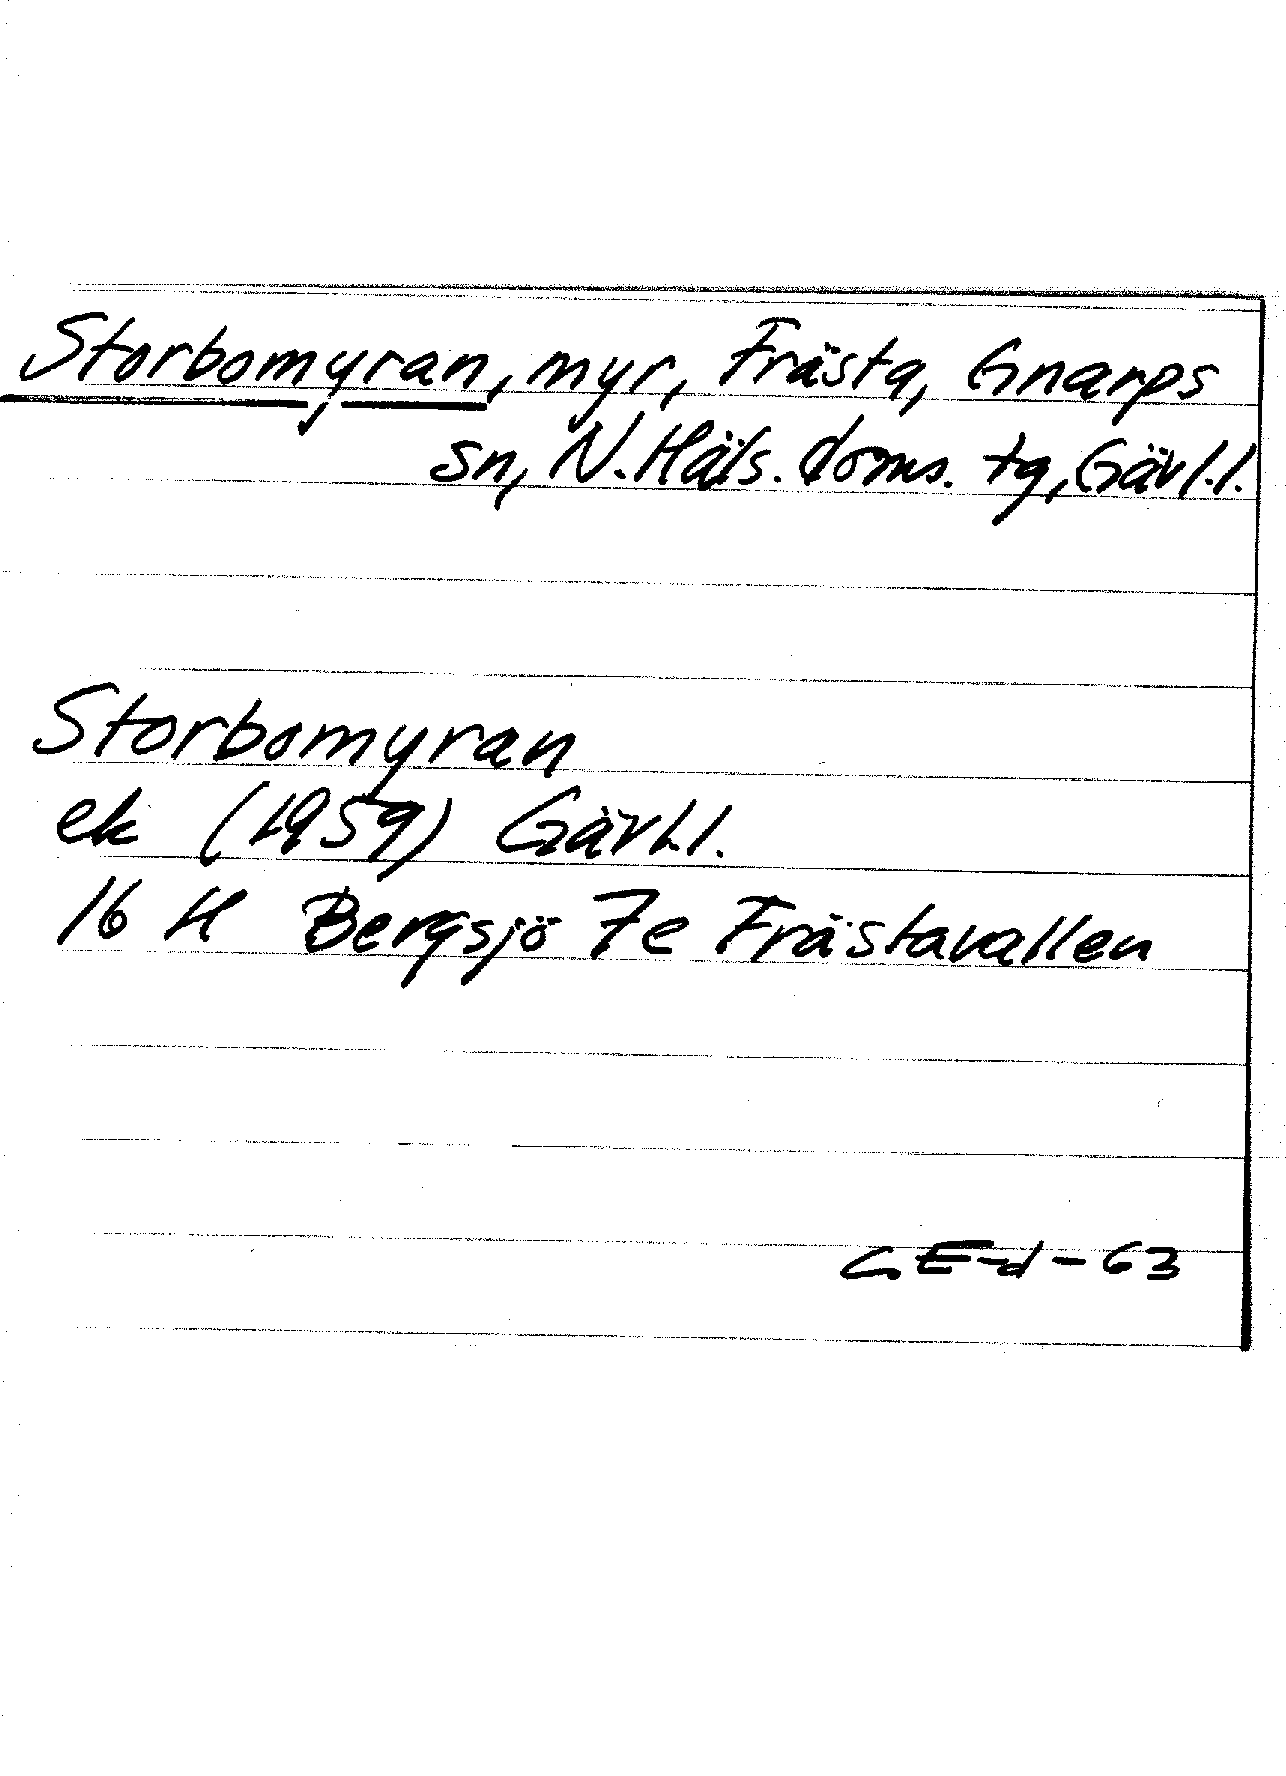 Storbomyran, myr, Frästa, Gnarps
sn, N. Häls. doms. tg, Gävl.l.
Storbomyran
ek (1959) Gävl.l.
16 H Bergsjö 7e Frästavallen
GE-d-63